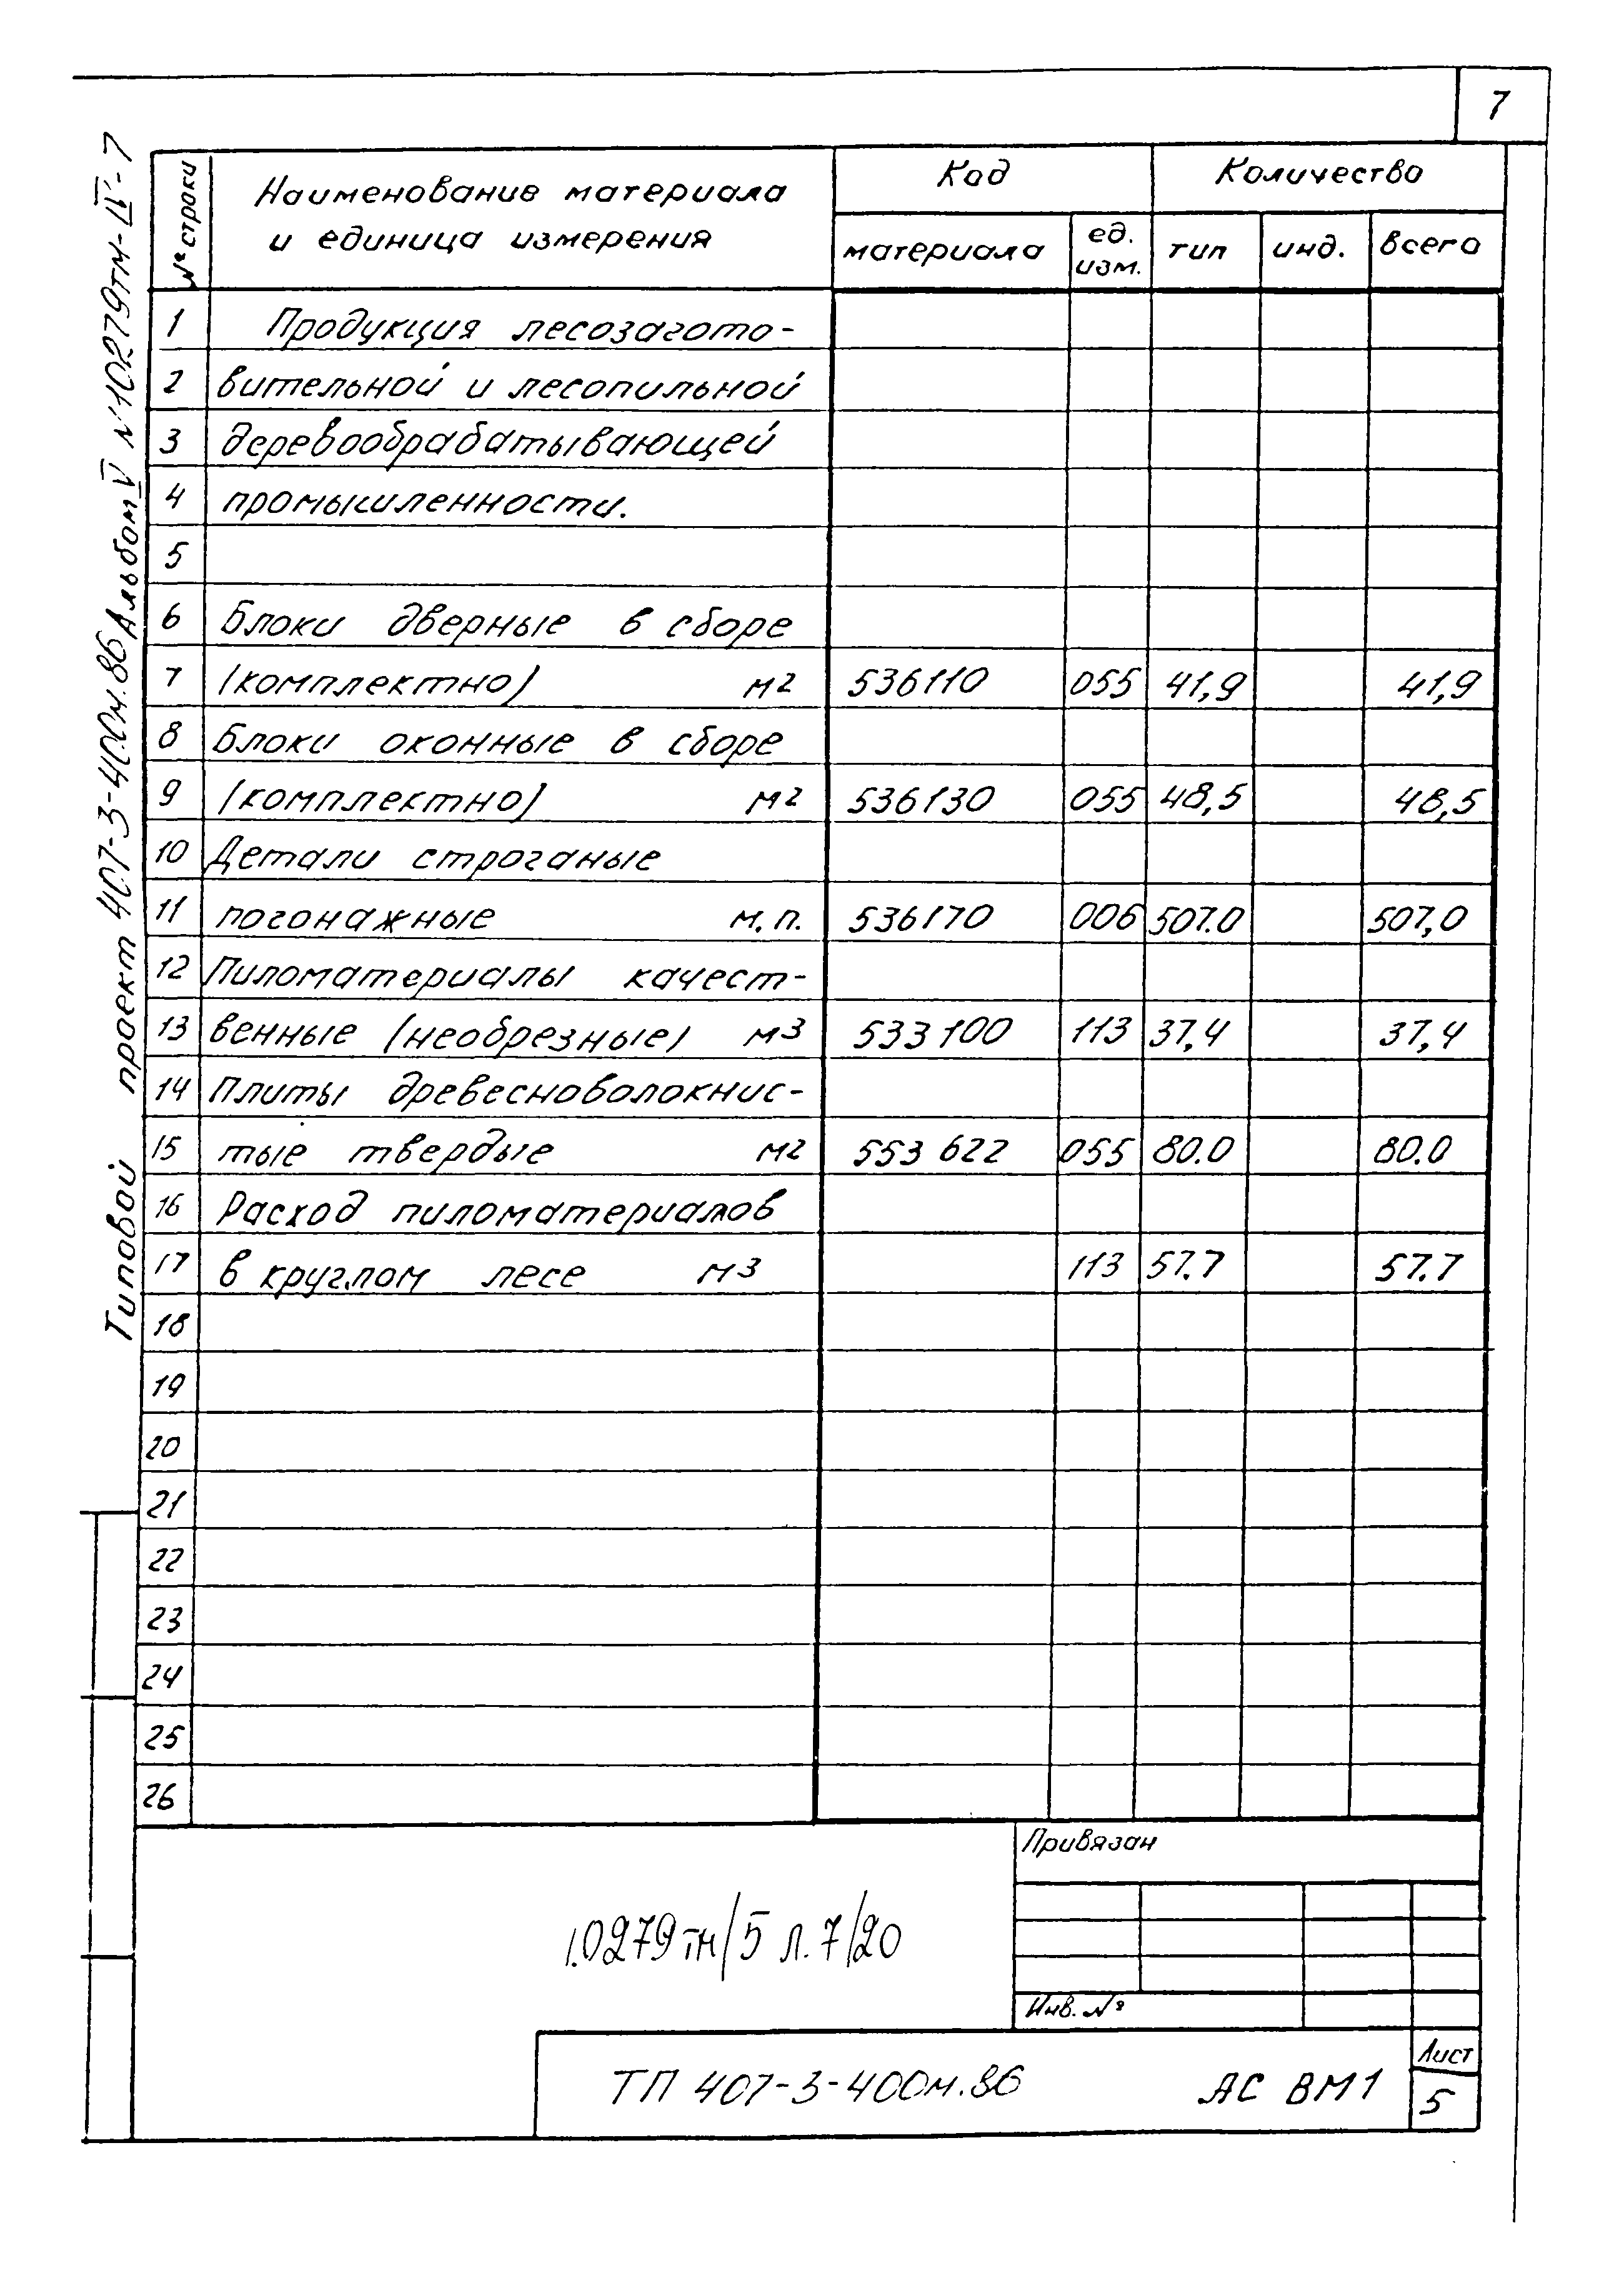 7
Типовой проект 407-3-400м.86 Альбом V №10279тм-IV-7
№ строки
Наименование материала
и единица измерения
Код
Количество
материала
ед.
изм.
тип
инд.
всего
1 Продукция лесозагото-
2 вительной и лесопильной
3 деревообрабатывающей
4 промышленности.
5
6 Блоки дверные в сборе
7 (комплектно) м2 536110 055 41,9 41,9
8 Блоки оконные в сборе
9 (комплектно) м2 536130 055 48,5 48,5
10 Детали строганые
11 погонажные м.п. 536170 006 507.0 507,0
12 Пиломатериалы качест-
13 венные (необрезные) м3 533100 113 37,4 37,4
14 Плиты древесноволокнис-
15 тые твердые м2 553 622 055 80.0 80.0
16 Расход пиломатериалов
17 в круглом лесе м3 113 57.7 57.7
18
19
20
21
22
23
24
25
26
Привязан
10279тм/5 л.7/20
Инв. №
ТП 407-3-400м.86 АС ВМ1
Лист
5